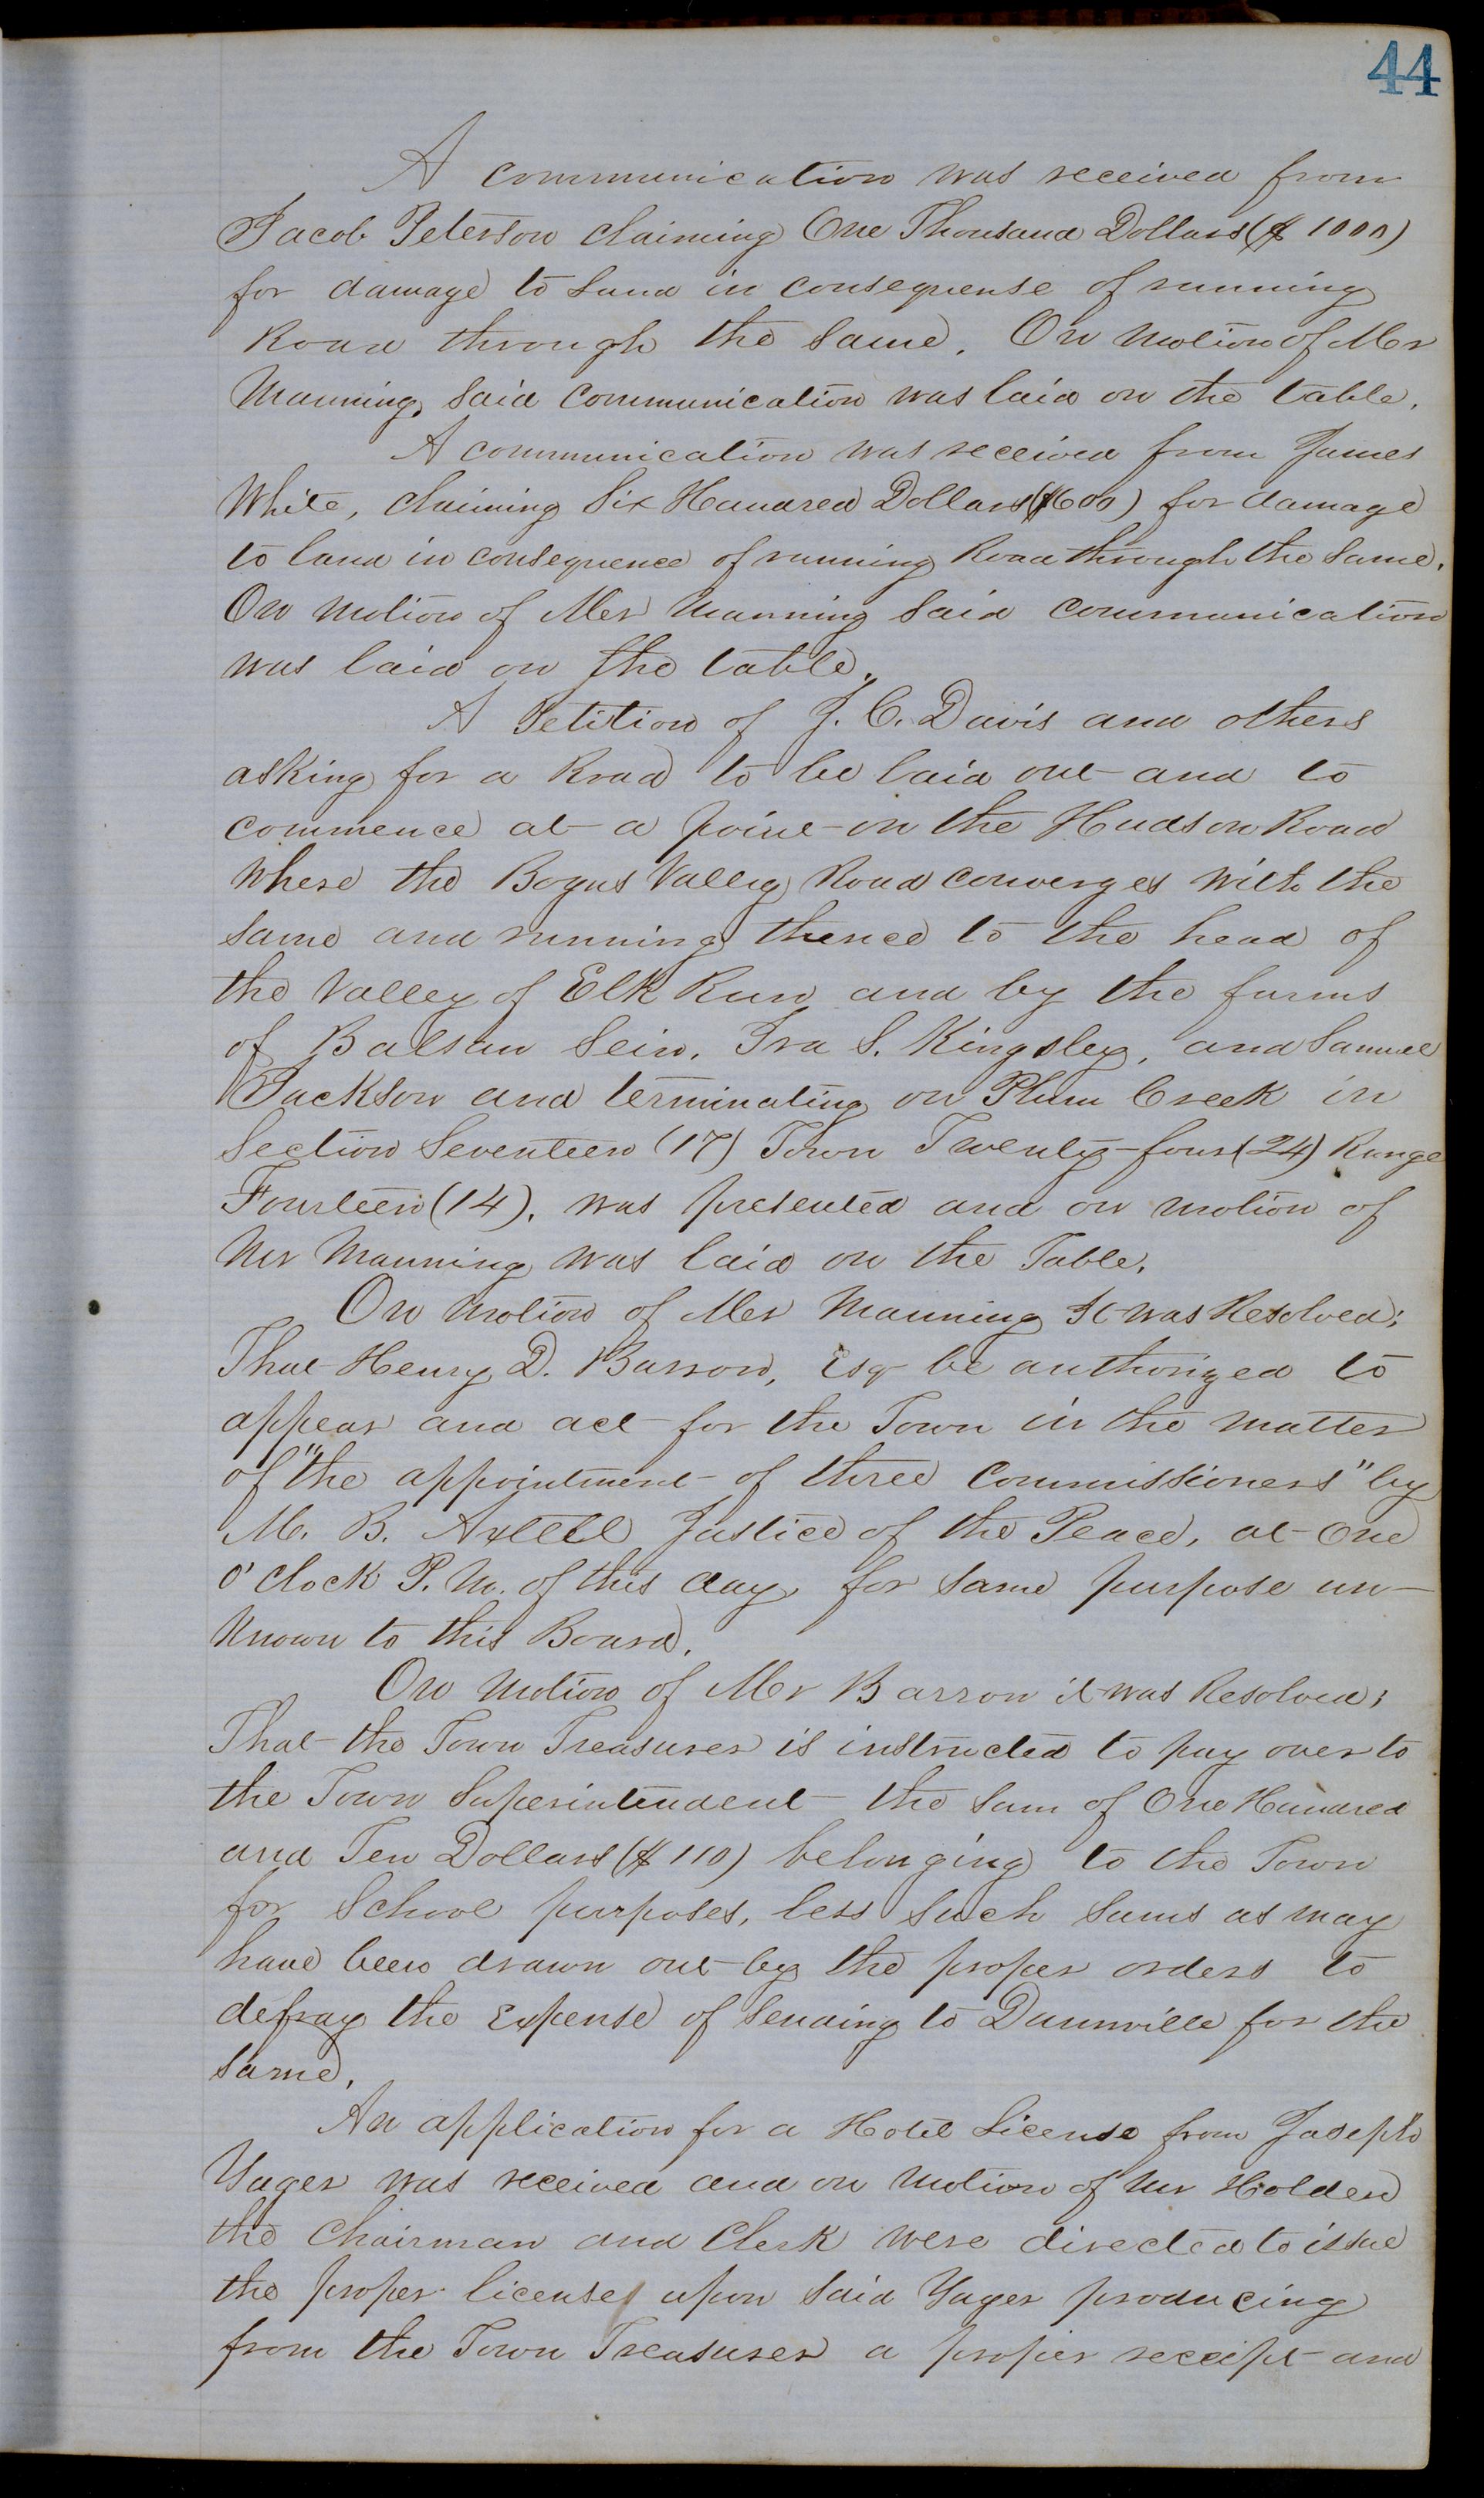 44
A communication was received from
Jacob Peterson claiming One Thousand Dollars ($1000)
for damage to Land in consequense of running
Road through the Same. On motion of Mr
Manning, Said Communication was laid on the table.
A communication was received from James
White, claiming Six Hundred Dollars ($600) for damage
to land in consequence of running Road through the Same.
On motion of Mr Manning Said Communication
was laid on the table.
A Petition of J. C. Davis and others
asking for a Road to be laid out and to
commence at a point on the Hudson Road
where the Bogus Valley Road converges with the
Same and running thence to the head of
the Valley of Elk Run and by the farms
of Balsan Sein, Ira S. Kingsley, and Samuel
Jackson and terminating on Plum Creek in
Section Seventeen (17) Town Twenty-four (24) Range
Fourteen (14), was presented and on motion of
Mr Manning was laid on the Table.
On motion of Mr Manning It was Resolved;
That Henry D. Barron, Esq be authorized to
appear and act for the Town in the matter
of "the appointment of three Commissioners" by
M. B. Axtell Justice of the Peace, at One
O'clock P.M. of this day for Same purpose un-
known to this Board.
On motion of Mr Barron it was Resolved;
That the Town Treasurer is instructed to pay over to
the Town Superintendent the Sum of One Hundred
and Ten Dollars ($110) belonging to the Town
for School purposes, less Such Sums as may
have been drawn out by the proper orders to
defray the Expense of Sending to Dunnville for the
Same.
An application for a Hotel License from Joseph
Yager was received and on motion of Mr Holden
the Chairman and Clerk were directed to issue
the proper license upon Said Yager producing
from the Town Treasurer a proper receipt and